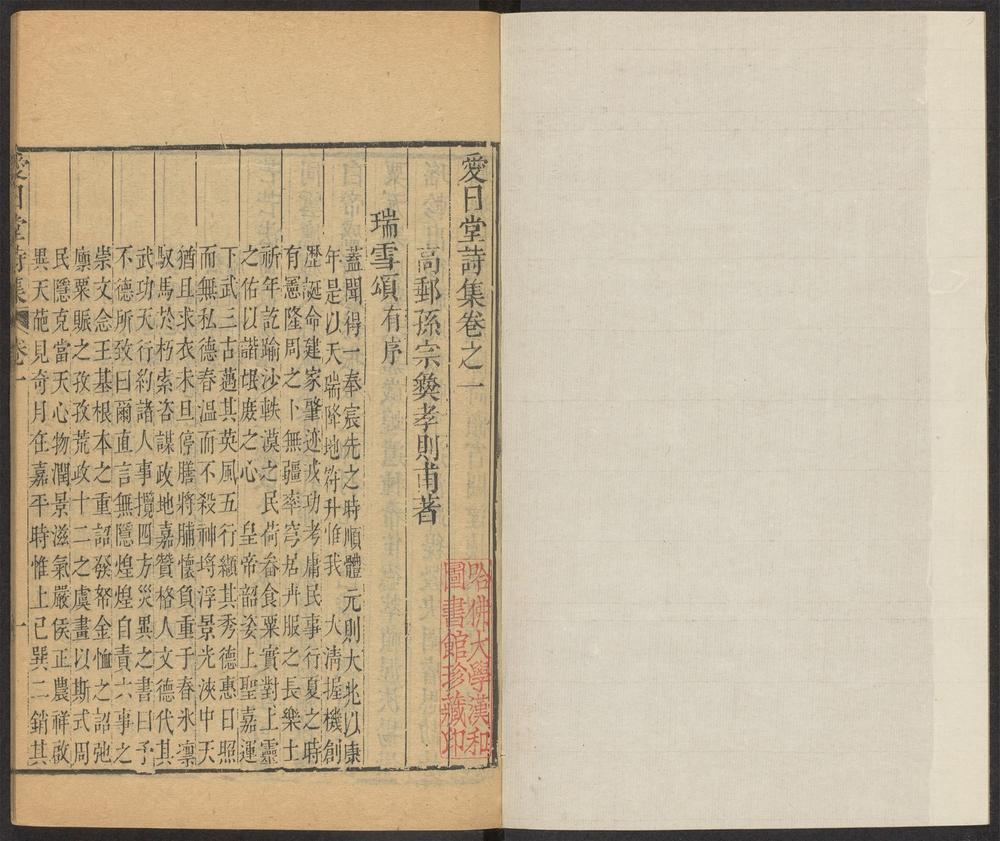 愛日堂詩集卷之一
高郵孫宗彝孝則甫著
瑞雪頌有序
蓋聞得一奉宸先之時順體元則大兆以康
年是以天瑞降地符升惟我 大清握機創
歷誕命建家肇迹戎功考庸民事行夏之時
有憲隆周之卜無疆率穹居卉服之長樂土
祈年訖踰沙軼漠之民荷畚食粟實對上靈
之佑以諧氓庶之心 皇帝韶姿上聖嘉運
下武三古邁其英風五行纈其秀德惠日照
而無私德春溫而不殺神塏浮景光浹中天
猶且求衣未旦停膳將脯懷負重于春氷凛
馭馬於朽索咨謀政地嘉贊格人文德代其
武功天行約諸人事攬四方災異之書曰予
不德所致曰爾直言無隱煌煌自責六事之
崇文念王基根本之重詔發帑金恤之詔弛
廪粟賑之孜孜荒政十二之虞畫以斯式周
民隱克當天心物潤景滋氣嚴侯正農祥啟
異天葩見奇月在嘉平時惟上巳巽二銷其
愛日堂詩集 卷一 一
哈佛大學漢和
圖書館珍藏印